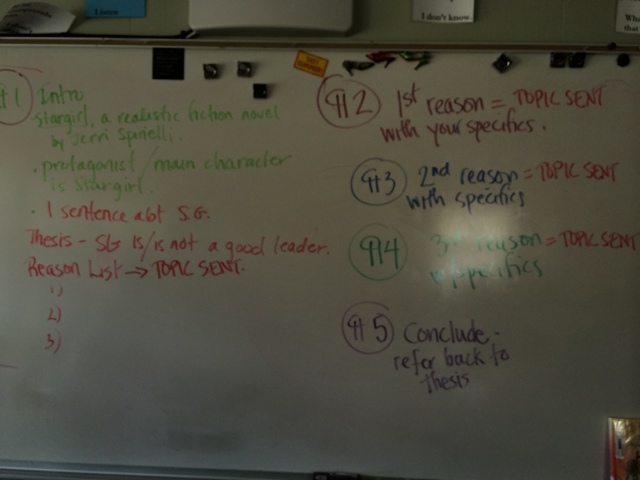 Listen
I don't know.
¶1 Intro
Stargirl, a realistic fiction novel
by Jerri Spinelli.
· protagonist / main character
is Stargirl.
· 1 sentence abt S.G.
Thesis - SG is/is not a good leader.
Reason List → TOPIC SENT.
1)
2)
3)
¶2 1st reason = TOPIC SENT
with your specifics.
¶3 2nd reason = TOPIC SENT
with specifics
¶4 3rd reason = TOPIC SENT
w/ specifics
¶5 Conclude -
refer back to
thesis